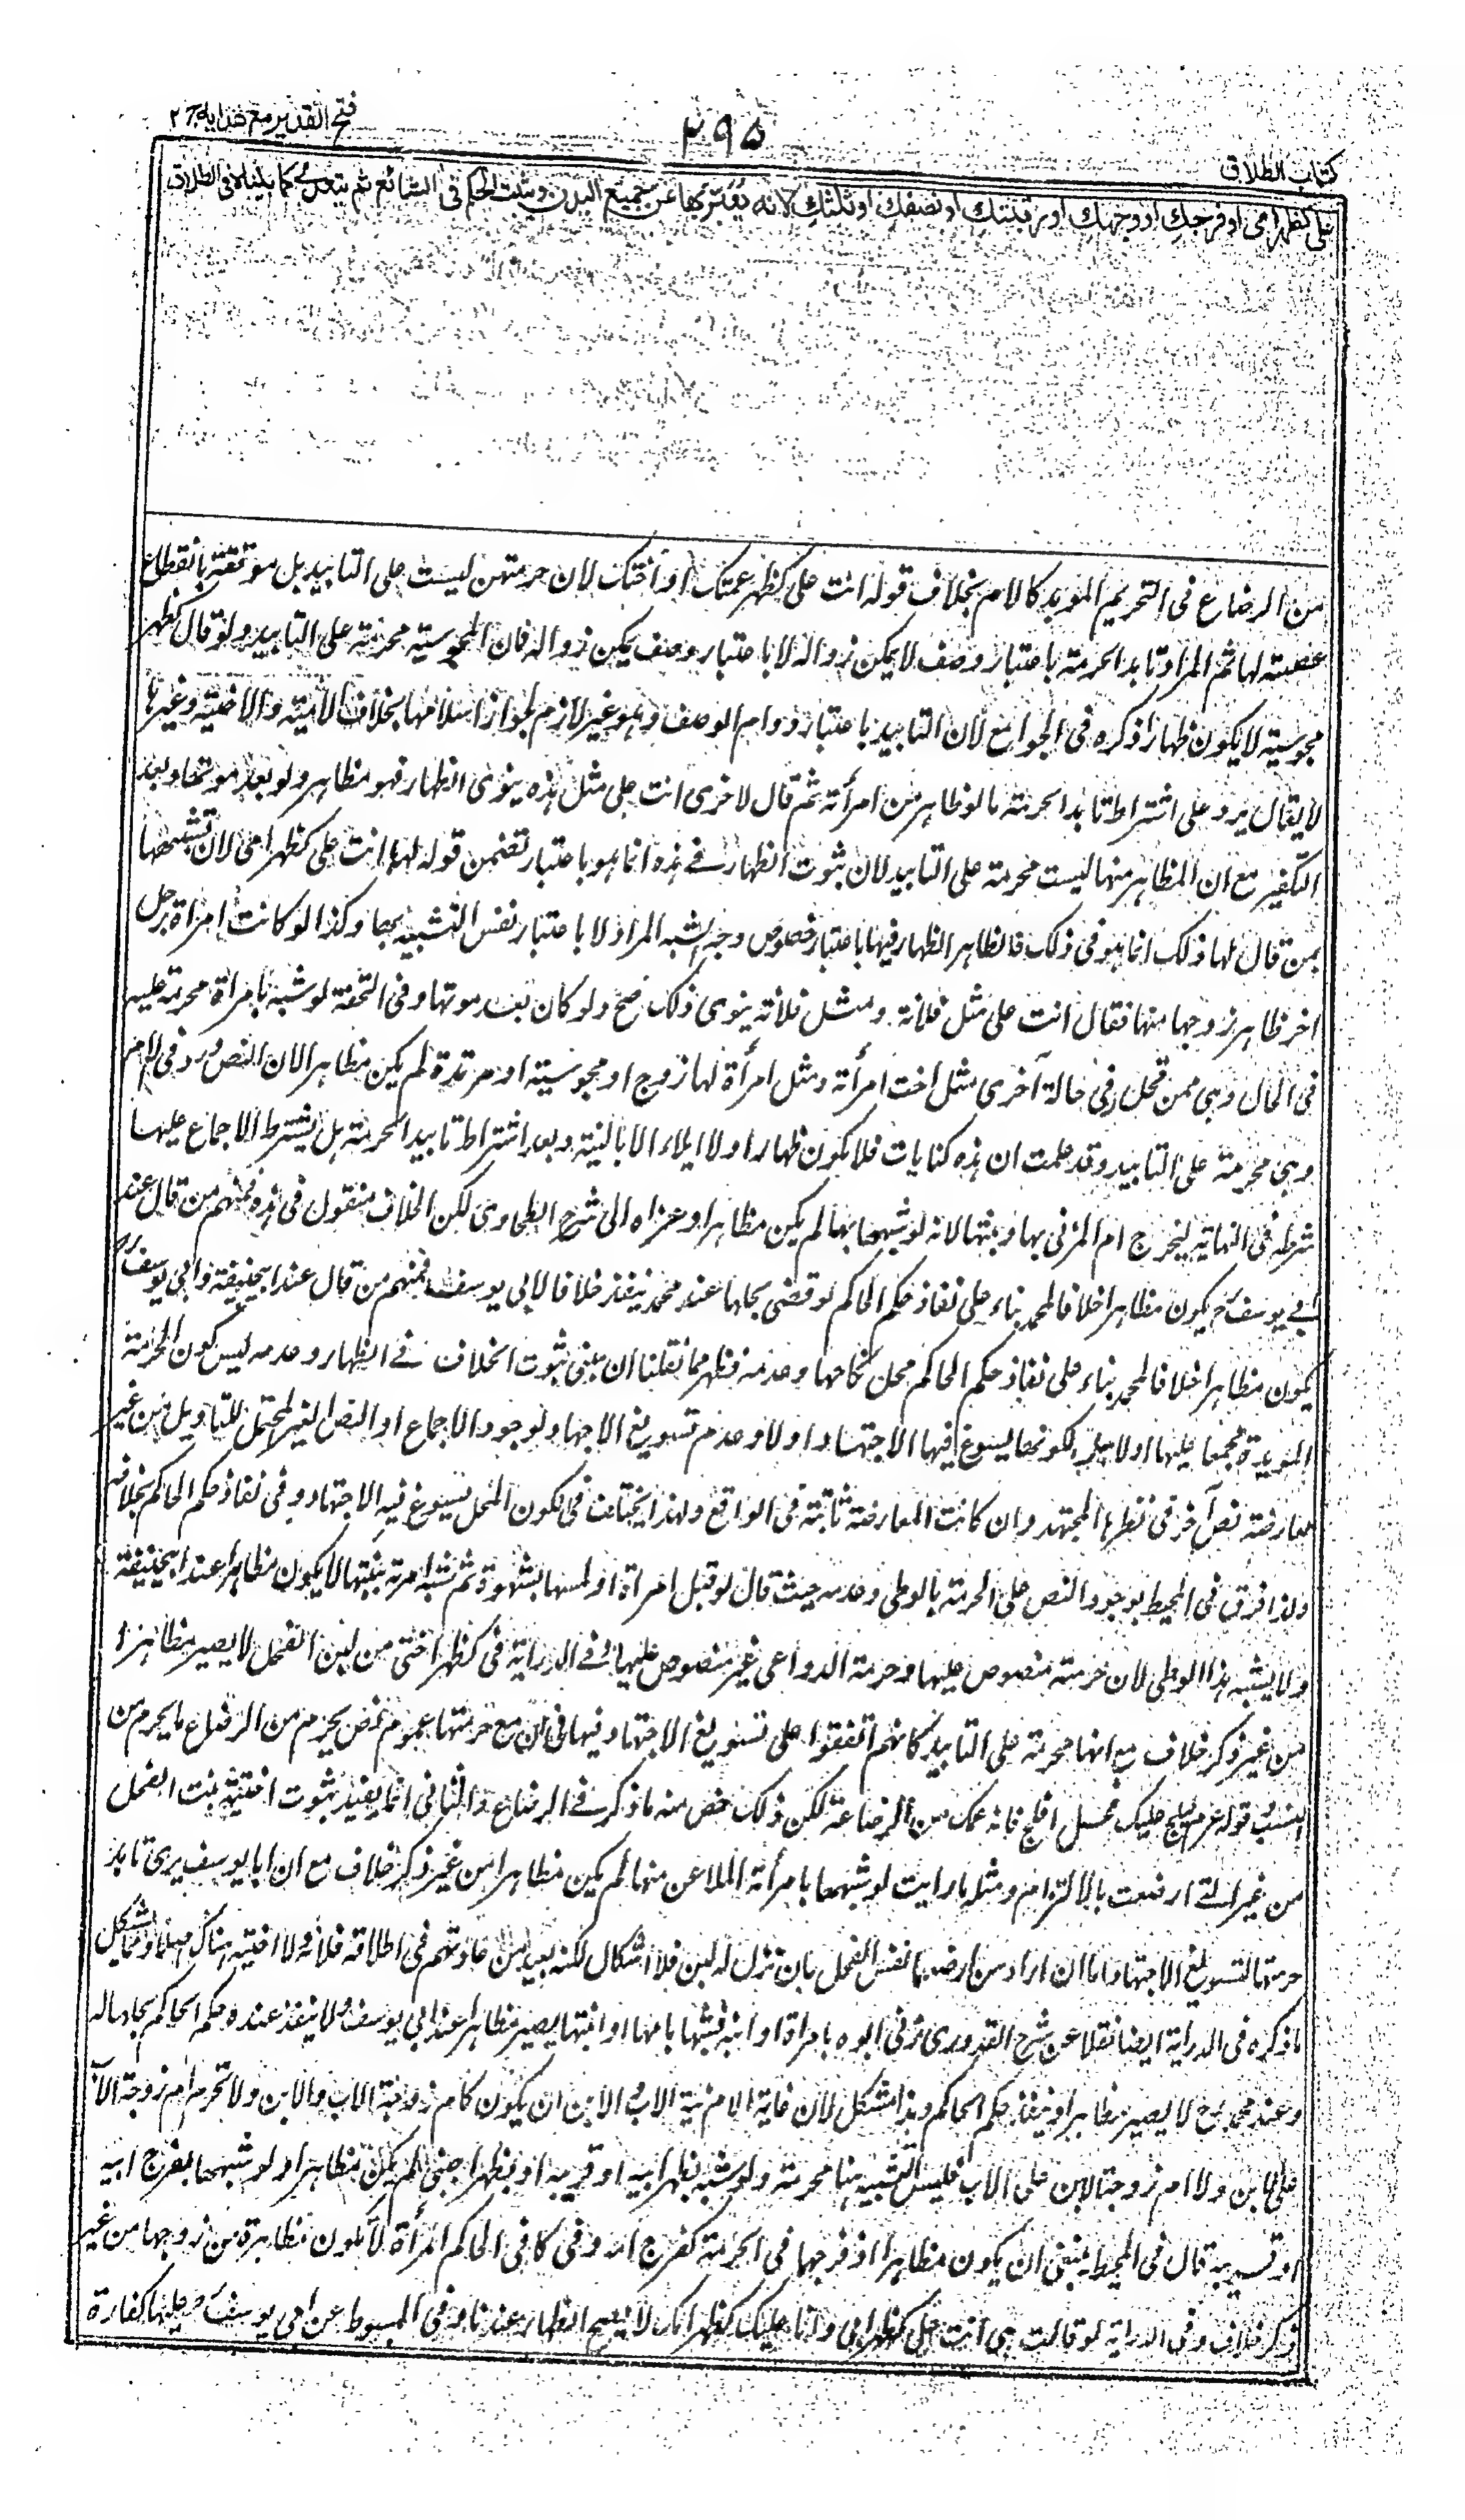 فتح القدير مع هدايه ج ٢
٣٩٥
كتاب الطلاق
على كظهر امى او فرجك او وجهك او رقبتك او نصفك او ثلثك لانه يعبر بها عن جميع البدن ويثبت الحكم فى الشائع ثم يتعدى كما بيناه فى الطلاق
من الرضاع فى التحريم الموبد كالام بخلاف قوله انت على كظهر عمتك او اختك لان حرمتهن ليست على التابيد بل موقتة بانقطاع
عصمته لها ثم المراد تابد الحرمة باعتبار وصف لا يمكن زواله لا باعتبار وصف يمكن زواله فان المجوسية محرمة على التابيد ولو قال كظهر
مجوسية لا يكون ظهارا ذكره فى الجوامع لان التابيد باعتبار دوام الوصف وهو غير لازم لجواز اسلامها بخلاف الامية والاختية وغيرها
لا يقال يرد على اشتراط تابد الحرمة ما لو ظاهر من امرأته ثم قال لاخرى انت على مثل هذه ينوى الظهار فهو مظاهر ولو بعد موتها وبعد
التكفير مع ان المظاهر منها ليست محرمة على التابيد لان ثبوت الظهار فى هذه انما هو باعتبار تضمن قوله لها انت على كظهر امى لان تشبيهها
بمن قال لها ذلك انما هو فى ذلك فالظاهر الظهار فيها باعتبار خصوص وجه الشبه المراد لا باعتبار نفس التشبيه بها وكذا لو كانت امرأة رجل
اخر ظاهر زوجها منها فقال انت على مثل فلانة ومثل فلانة ينوى ذلك صح ولو كان بعد موتها وفى التحفة لو شبه بامرأة محرمة عليه
فى الحال وهى ممن تحل فى حالة آخرى مثل اخت امرأته ومثل امرأة لها زوج او مجوسية او مرتدة لم يكن مظاهرا لان النص ورد فى الام
وهى محرمة على التابيد وقد علمت ان هذه كنايات فلا يكون ظهارا ولا ايلاء الا بالنية وبعد اشتراط تابيد الحرمة هل يشترط الاجماع عليها
شرطه فى النهاية ليخرج ام المزنى بها وبنتها لانه لو شبهها بها لم يكن مظاهرا وعزاه الى شرح الطحاوى لكن الخلاف منقول فى هذه فمنهم من قال عند
ابى يوسف يكون مظاهرا خلافا لمحمد بناء على نفاذ حكم الحاكم لو قضى بحلها عند محمد ينفذ خلافا لابى يوسف فمنهم من قال عند ابيحنيفة وابى يوسف
يكون مظاهرا خلافا لمحمد بناء على نفاذ حكم الحاكم بحل نكاحها وعدمه فظهر مما نقلنا ان مبنى ثبوت الخلاف فى الظهار وعدمه ليس كون الحرمة
الموبدة مجمعا عليها اولا بل لكونها يسوغ فيها الاجتهاد اولا وعدم تسويغ الاجتهاد لوجود الاجماع او النص الغير المحتمل للتاويل من غير
معارضة نص آخر فى نظر المجتهد وان كانت المعارضة ثابتة فى الواقع ولهذا يختلف فى كون المحل يسوغ فيه الاجتهاد وفى نفاذ حكم الحاكم بخلافه
ولذا فرق فى المحيط بوجود النص على الحرمة بالوطى وعدمه حيث قال لو قبل امرأة او لمسها بشهوة ثم شبه امرأته ببنتها لا يكون مظاهرا عند ابيحنيفة
ولا يشبه هذا الوطى لان حرمته منصوص عليها وحرمة الدواعى غير منصوص عليها وفى الدراية فى كظهر اختى من لبن الفحل لا يصير مظاهرا
من غير ذكر خلاف مع انها محرمة على التابيد كانهم اتفقوا على تسويغ الاجتهاد فيها مع حرمتها عموم نص يحرم من الرضاع ما يحرم من
النسب وقوله عم ليلج عليك افلح فانه عمك من الرضاعة لكن ذلك خص منه ما ذكر فى الرضاع والثانى انما يفيد ثبوت اختية بنت الفحل
من غير التى ارضعت بالالتزام ومثله ما رايت لو شبهها بامرأة الملاعن منها لم يكن مظاهرا من غير ذكر خلاف مع ان ابا يوسف يرى تابد
حرمتها لتسويغ الاجتهاد واما ان اراد من ارضعها نفس الفحل بان نزل له لبن فلا اشكال لكنه بعيد من عادتهم فى اطلاقه فلانه ولا اختية هناك اصلا ومما يشكل
ما ذكره فى الدراية ايضا نقلا عن شرح القدورى زنى ابوه بامرأة او ابنه فشبهها بامها او ابنتها يصير مظاهرا عند ابى يوسف ولا ينفذ عنده حكم الحاكم بحلها له
وعند محمد رح لا يصير مظاهرا وينفذ حكم الحاكم وهذا مشكل لان غاية الام مزنية الاب والابن ان يكون كام زوجة الاب والابن ولا تحرم ام زوجة الاب
على الابن ولا ام زوجة الابن على الاب فليس التشبيه هنا محرمة ولو شبه بظهر ابيه او قريبه او بظهر اجنبى لم يكن مظاهرا ولو شبهها بفرج ابيه
او قريبه قال فى المحيط ينبغى ان يكون مظاهرا اذ فرجها فى الحرمة كفرج امه وفى كافى الحاكم امرأة لا تكون مظاهرة من زوجها من غير
ذكر خلاف وفى الدراية لو قالت هى انت على كظهر امى وانا عليك كظهر امك لا يصح الظهار عندنا وفى المبسوط عن ابى يوسف عليها كفارة